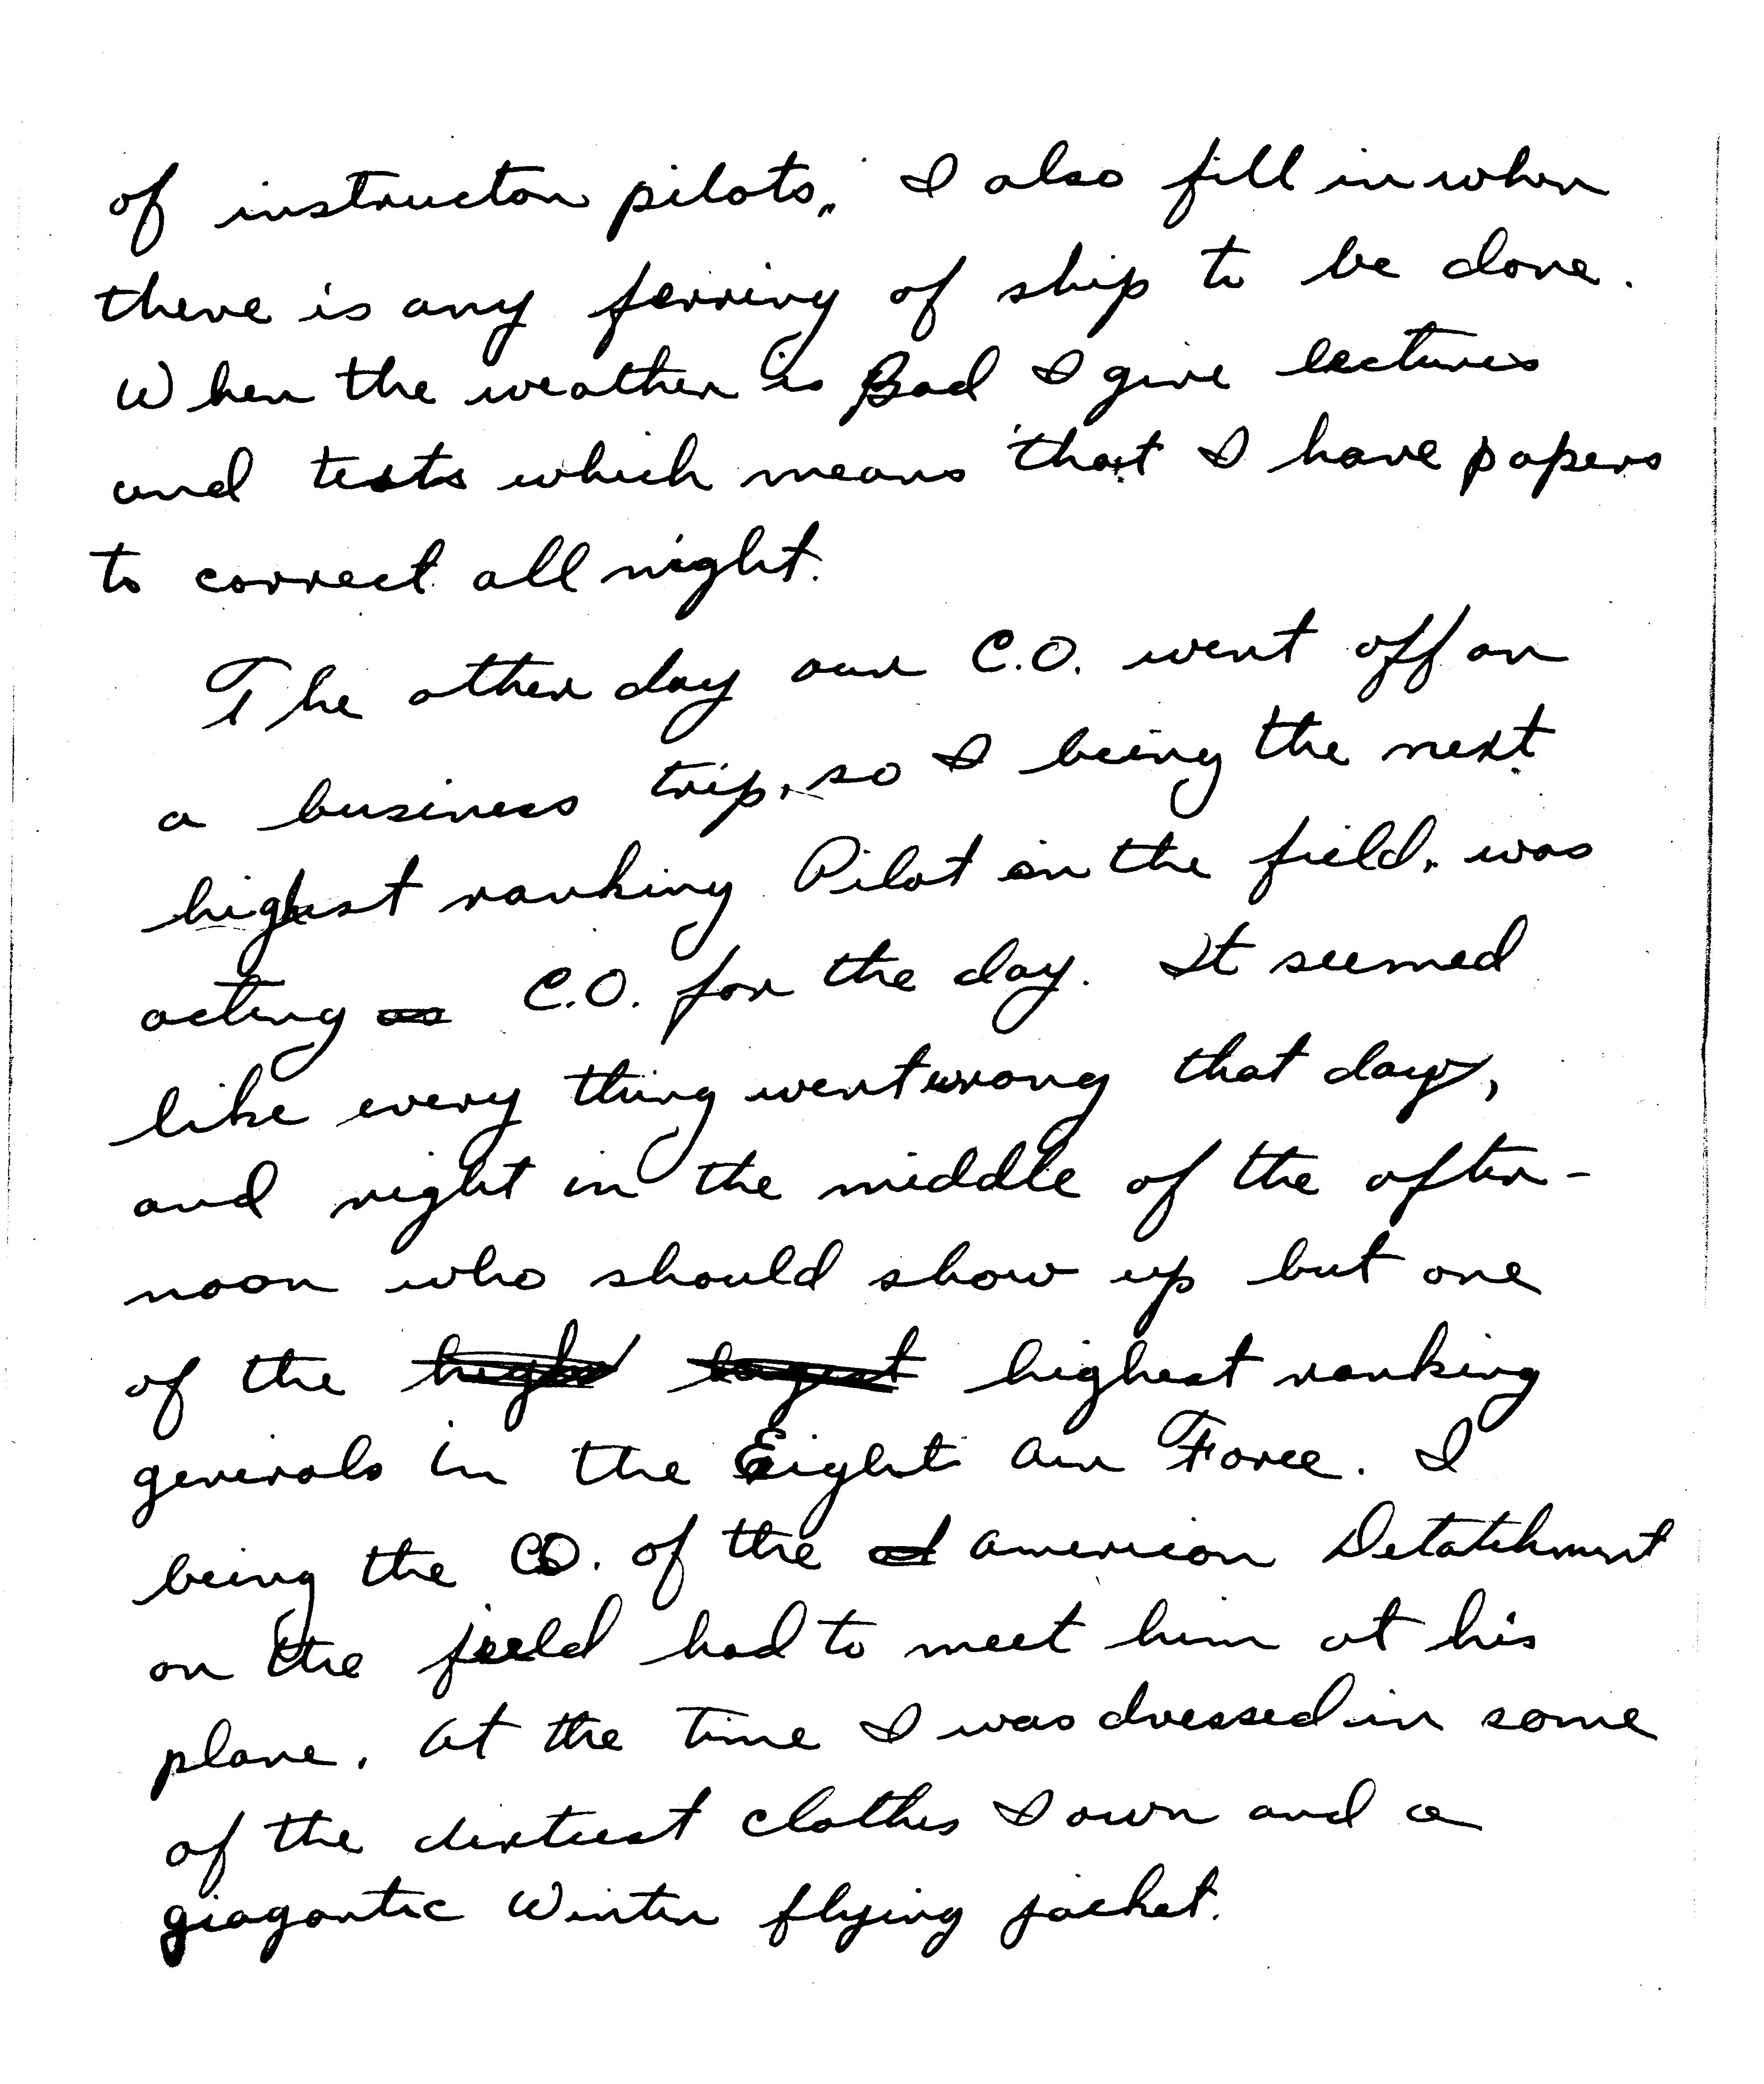 of instructor pilots. I also fill in when
there is any ferring of ship to be done.
When the weather is Bad I give lectures
and tests which means that I have papers
to correct all night.
The other day our C.O. went off on
a business trip, so I being the next
highest ranking Pilot on the field, was
acting as C.O. for the day. It seemed
like every thing went wrong that day,
and right in the middle of the after-
noon who should show up but one
of the highest ranking
generals in the Eight Air Force. I
being the CO. of the American Detatchment
on the field had to meet him at his
plane. At the time I was dressed in some
of the dirtiest clothes I own and a
giagantic Winter flying jacket.